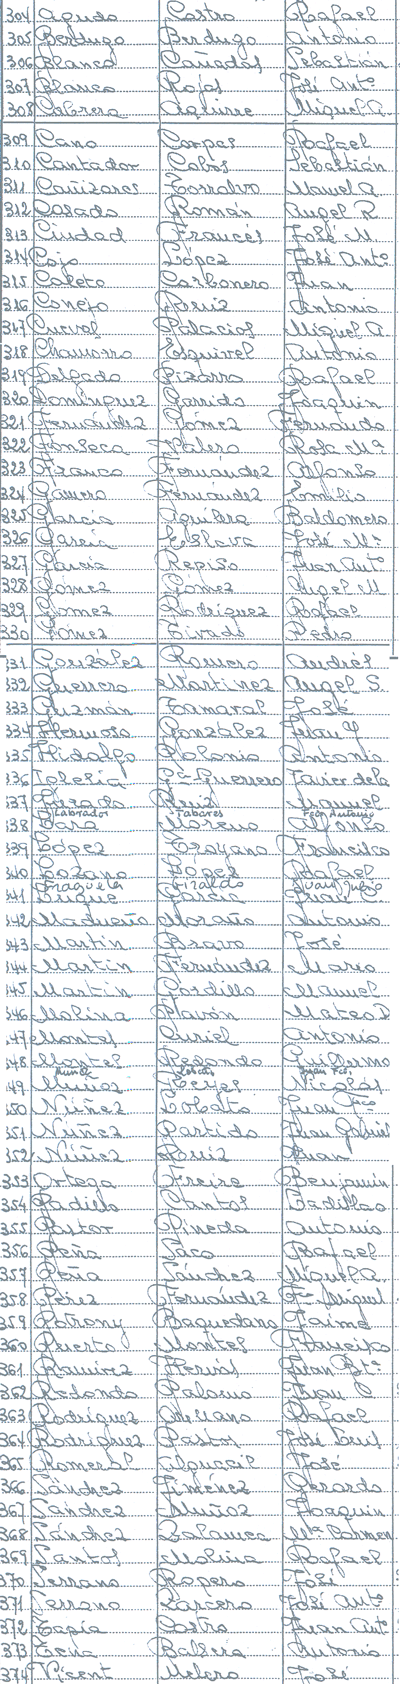 304 Agudo Castro Rafael
305 Berdugo Berdugo Antonio
306 Blanco Cañadas Sebastián
307 Blanco Rojas José Antº
308 Cabrera Aguirre Miguel A.
309 Cano Carpas Rafael
310 Cantador Cobos Sebastián
311 Cañizares Torralvo Manuel A.
312 Casado Román Angel R
313 Ciudad Francés José M
314 Cojo López José Antº
315 Coleto Carbonero Juan
316 Conejo Ruiz Antonio
317 Palacios Miguel A.
318 Chamorro Esquivel Antonio
319 Delgado Pizarro Rafael
320 Domínguez Garrido Joaquín
321 Fernández Gómez Fernando
322 Fonseca Rosa Mª
323 Franco Fernández Alfonso
324 Gamero Fernández Emilio
325 García Aguilera Baldomero
326 García Eslava José Mª
327 García Repiso Juan Antº
328 Gómez Gómez Angel M
329 Gómez Rodríguez Rafael
330 Gómez Tirado Pedro
331 González Romero Andrés
332 Guerrero Martinez Angel S.
333 Guzmán Tamaral José
334 Hermoso González Juan J
335 Hidalgo Polonio Antonio
336 Iglesia Gª Guerrero Javier de la
337 Jurado Ruiz Manuel
Labrador Tabares Fco Antonio
338 Lara Moreno Alfonso
339 López Francisco
340 Lozano López Rafael
Fragueta Juan Julio
341 Luque García Juan
342 Madueño Moraño Antonio
343 Martin Bravo José
344 Martin Fernández Mario
345 Martin Gordillo Manuel
346 Molina Pavón Mateo D
347 Montes Curiel Antonio
348 Montes Redondo Guillermo
Núñez Lobato Juan Fco.
349 Muñoz Nicolás
350 Núñez Lobato Juan Fco
351 Núñez Partido Juan Gabriel
352 Núñez Ruiz Juan
353 Ortega Freire Benjamín
354 Padilla Santos
355 Pastor Pineda Antonio
356 Peña Paco Rafael
357 Peña Sánchez Miguel A.
358 Pérez Fernández Fº Miguel
359 Potrony Baquedano Jaime
360 Puerto Montes Francisco
361 Ramirez Juan Btª
362 Redondo Palomo Juan
363 Rodríguez Arellano Rafael
364 Rodríguez Pastor José Luis
365 Romeral Alguacil José
366 Sánchez Jiménez Gerardo
367 Sánchez Muñoz Joaquín
368 Sánchez Mª Carmen
369 Santos Molina Rafael
370 Serrano Ropero José
371 Serrano José Antº
372 Tapia Castro Juan Antº
373 Tena Balsera Antonio
374 Vicent Melero José